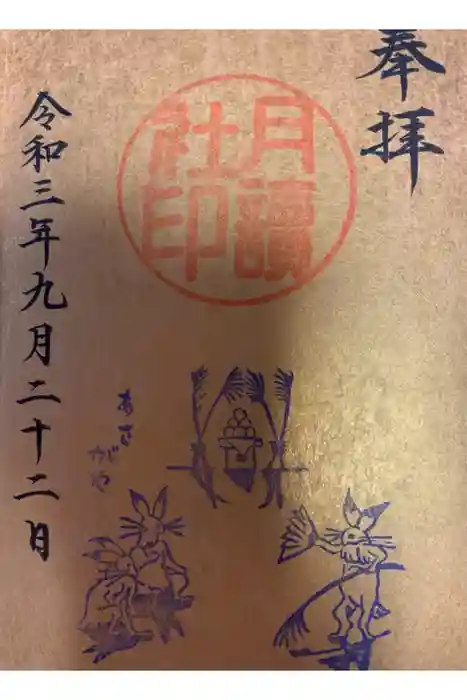 奉拝
月讀
社印
あさ
がや
令和三年九月二十二日